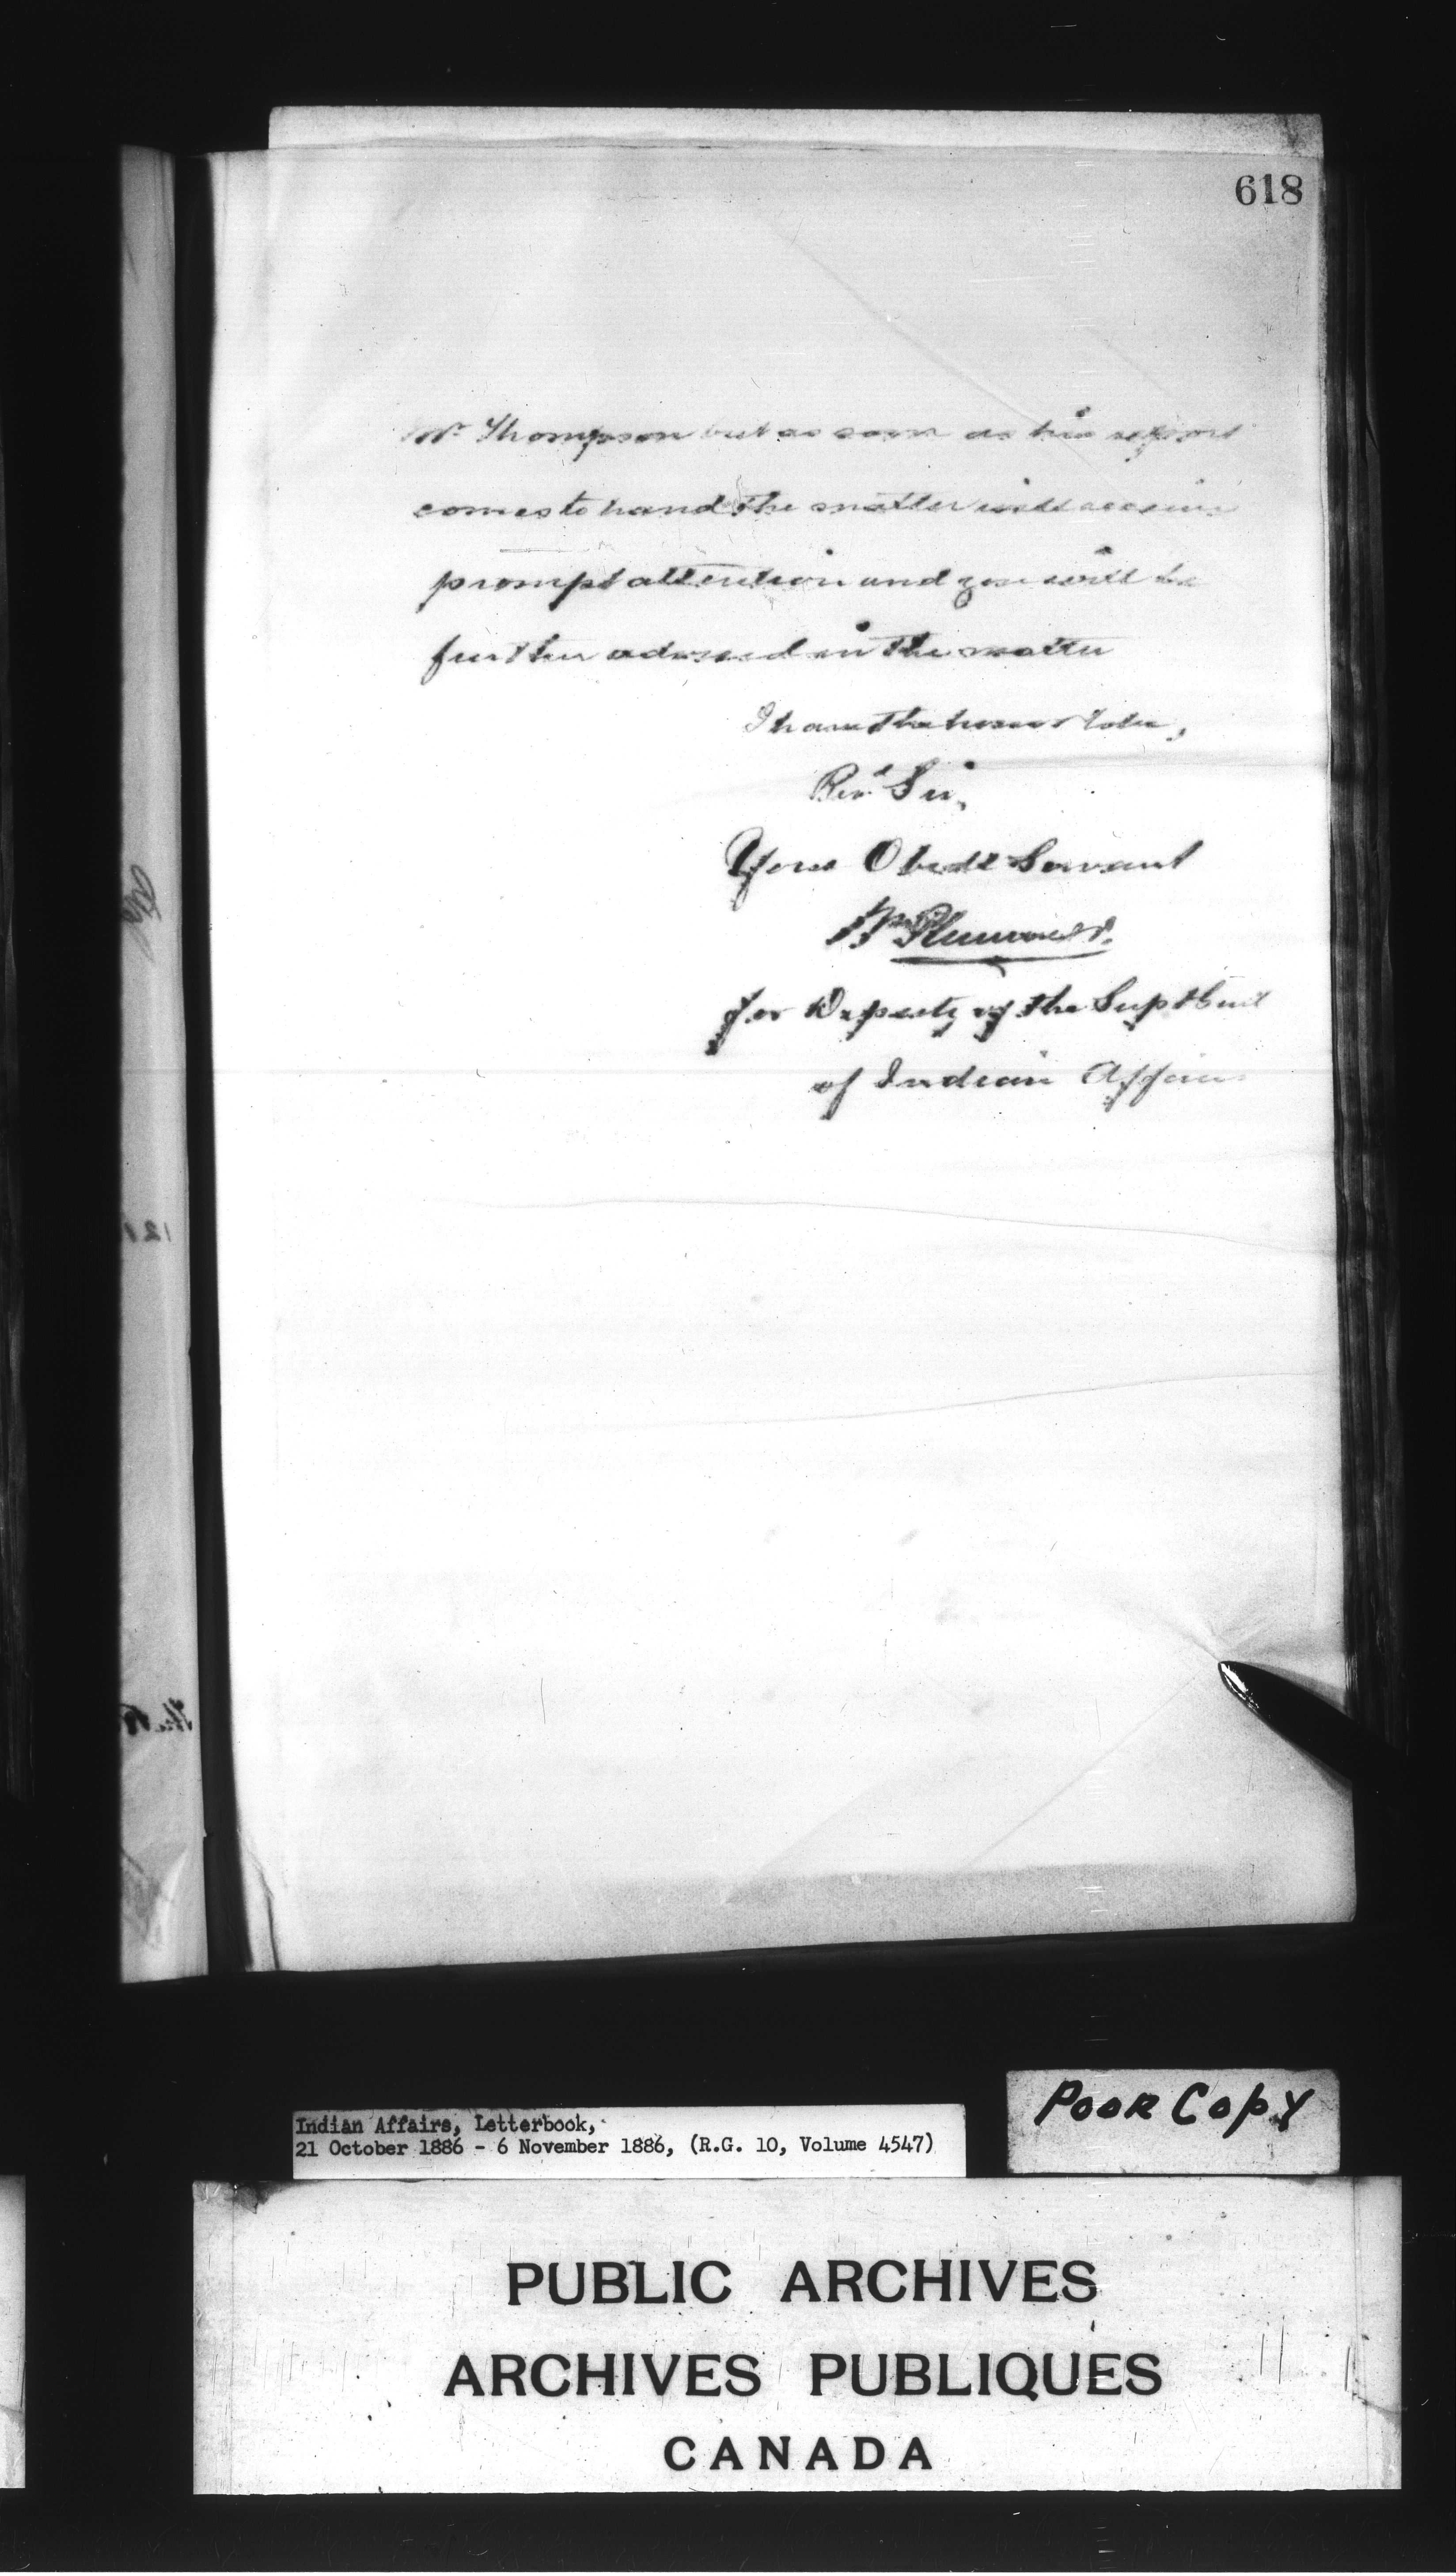 618
Mr. Thompson but as soon as his report
comes to hand the matter will receive
prompt attention and you will be
further advised in the matter
I have the honor to be,
Revd Sir,
Your Obedt Servant
W Plummer
for Deputy of the Supt Genl
of Indian Affairs
Indian Affairs, Letterbook,
21 October 1886 - 6 November 1886, (R.G. 10, Volume 4547)
POOR COPY
PUBLIC ARCHIVES
ARCHIVES PUBLIQUES
CANADA